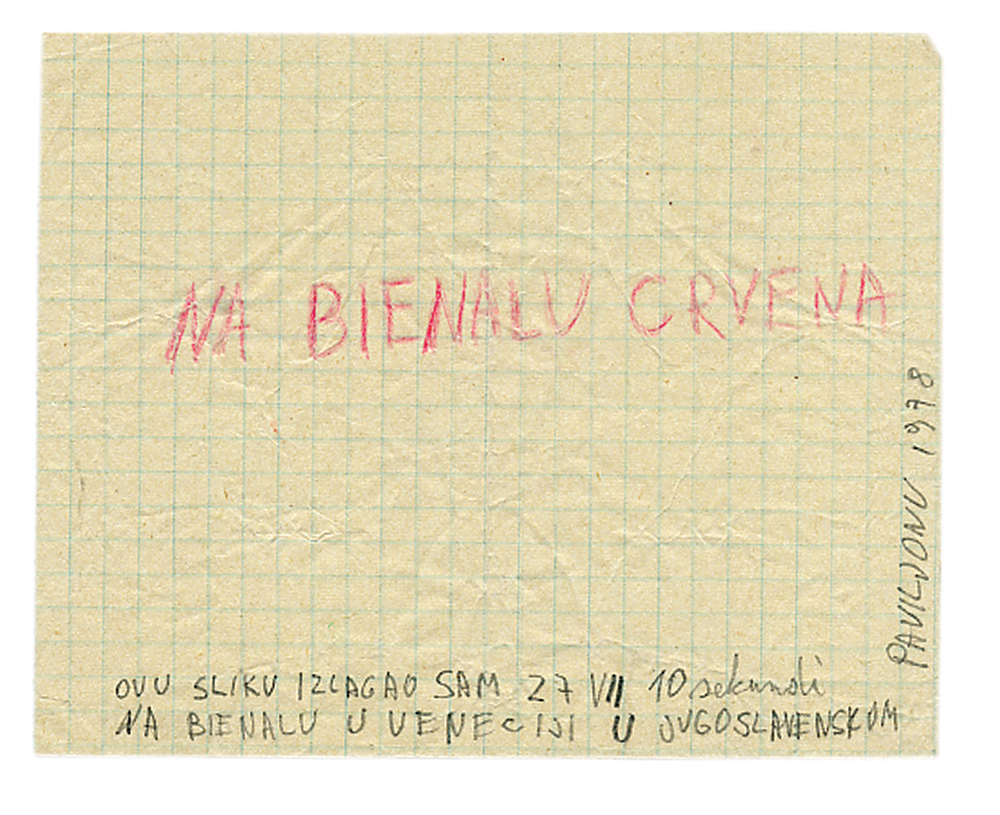 NA BIENALU CRVENA
OVU SLIKU IZLAGAO SAM 27 VII 10 sekundi
NA BIENALU U VENECIJI U JUGOSLAVENSKOM
PAVILJONU 1978